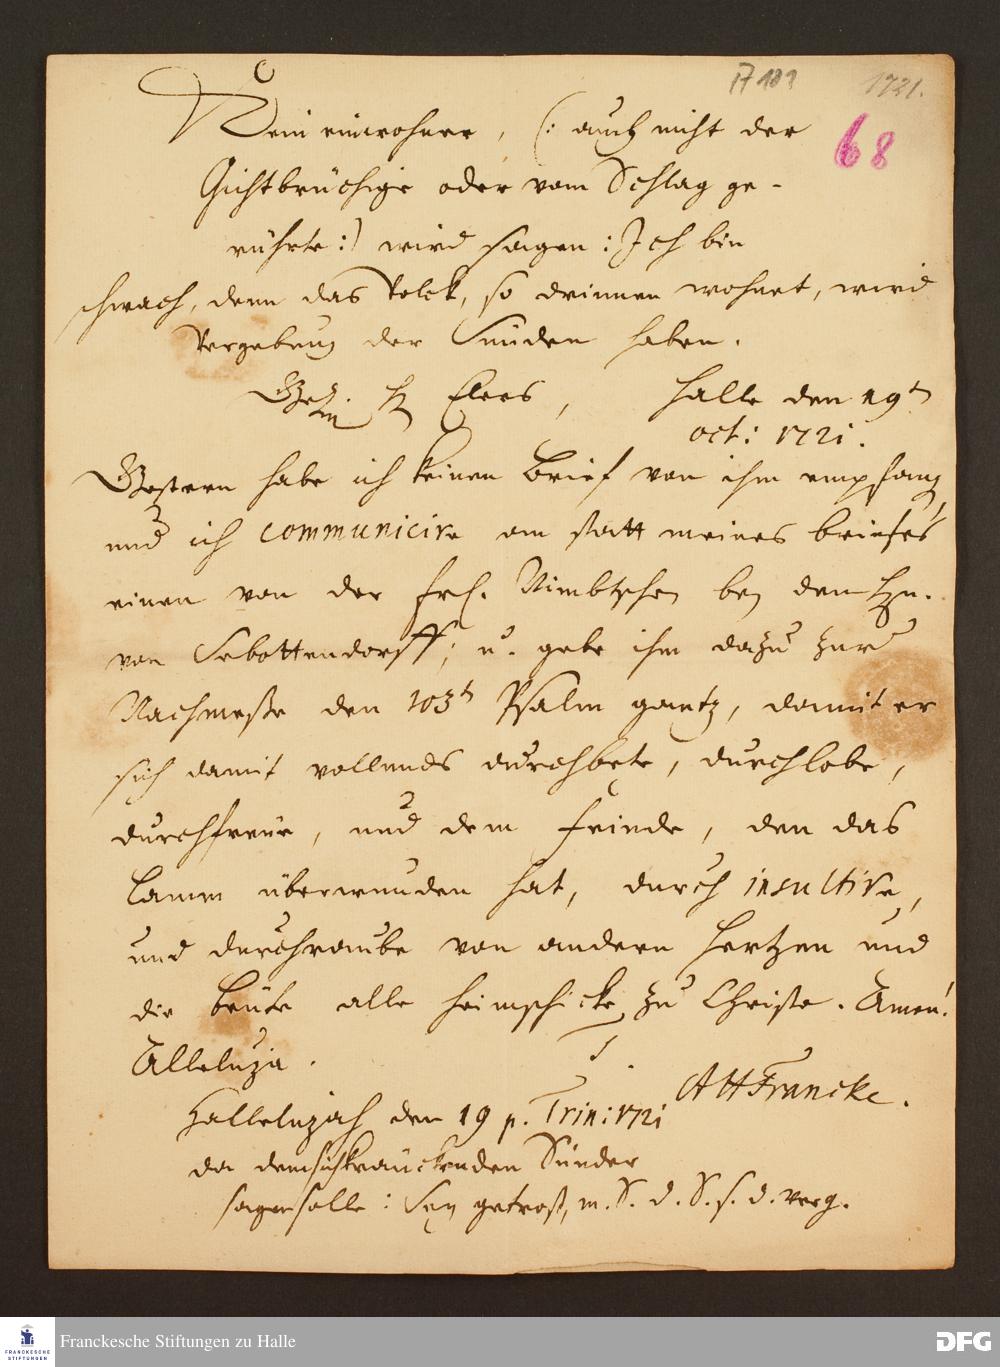 17 181 1721.
68
Kein einwohner, (: auch nicht der
Gichtbrüchige oder vom Schlag ge-
rührte :) wird sagen: Ich bin
schwach, denn das Volck, so drinnen wohnet, wird
Vergebung der Sünden haben.
H Elers, Halle den 19t
oct: 1721.
Gestern habe ich keinen Brief von ihm empfang,
und ich communicire an statt meines briefes
einen von der Frl. Nimbtschen bey dem Hn.
von Sebottendorff; u. gebe ihm dazu zur
Nachmeße den 103t Psalm gantz, damit er
sich damit vollends durchbete, durchlobe,
durchfreue, und dem Feinde, den das
Lamm überwunden hat, durch insultire,
und durchraube von andern Hertzen und
die beute alle heimschicke zu Christo. Amen!
Alleluja.
AHFrancke.
Hallelujah den 19 p. Trin: 1721
da dem sich kränckenden Sünder
sagen solle: Sey getrost, m. S. d. S. s. d. verg.
FRANCKESCHE STIFTUNGEN
Franckesche Stiftungen zu Halle
DFG